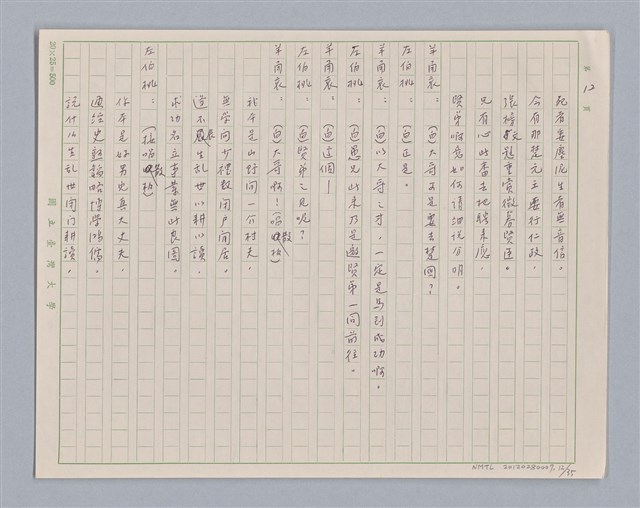 第12頁
死者委塵泥生者無音信。
今有那楚元王要行仁政，
張榜文懸重賞徵尋賢臣。
兄有心此番去地聘來應，
賢弟啊意如何請細說分明。
羊角哀：(白)大哥可是要去楚國？
左伯桃：(白)正是。
羊角哀：(白)以大哥之才，一定是馬到成功啊。
左伯桃：(白)愚兄此來乃是邀賢弟一同前往。
羊角哀：(白)這個—
左伯桃：(白)賢弟之見呢？
羊角哀：(白)大哥啊！(唱散板)
我本是山野間一介村夫，
無學問少禮數閉戶閒居。
逢不辰生亂世以耕以讀，
求功名立事業無此良圖。
左伯桃：(接唱散板)
你本是好男兒真大丈夫，
通經史熟韜略博學鴻儒。
說什么生亂世閉門耕讀，
20×25=500
國立臺灣大學
NMTL 20120280009, 12/35